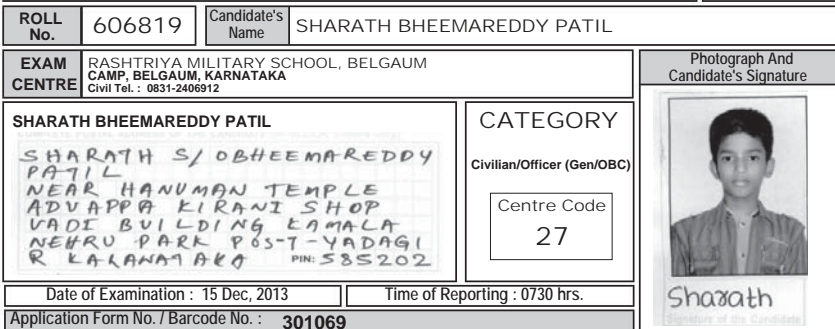 ROLL No. 606819 Candidate's Name SHARATH BHEEMAREDDY PATIL
EXAM CENTRE RASHTRIYA MILITARY SCHOOL, BELGAUM
CAMP, BELGAUM, KARNATAKA
Civil Tel. : 0831-2406912
Photograph And
Candidate's Signature
SHARATH BHEEMAREDDY PATIL
SHARATH S/OBHEEMAREDDY
PATIL
NEAR HANUMAN TEMPLE
ADVAPPA KIRANI SHOP
VADI BUILDING KAMALA
NEHRU PARK POST-YADAGI
R KARANATAKA PIN: 585202
CATEGORY
Civilian/Officer (Gen/OBC)
Centre Code
27
Sharath
Signature of the Candidate
Date of Examination : 15 Dec, 2013
Time of Reporting : 0730 hrs.
Application Form No. / Barcode No. : 301069